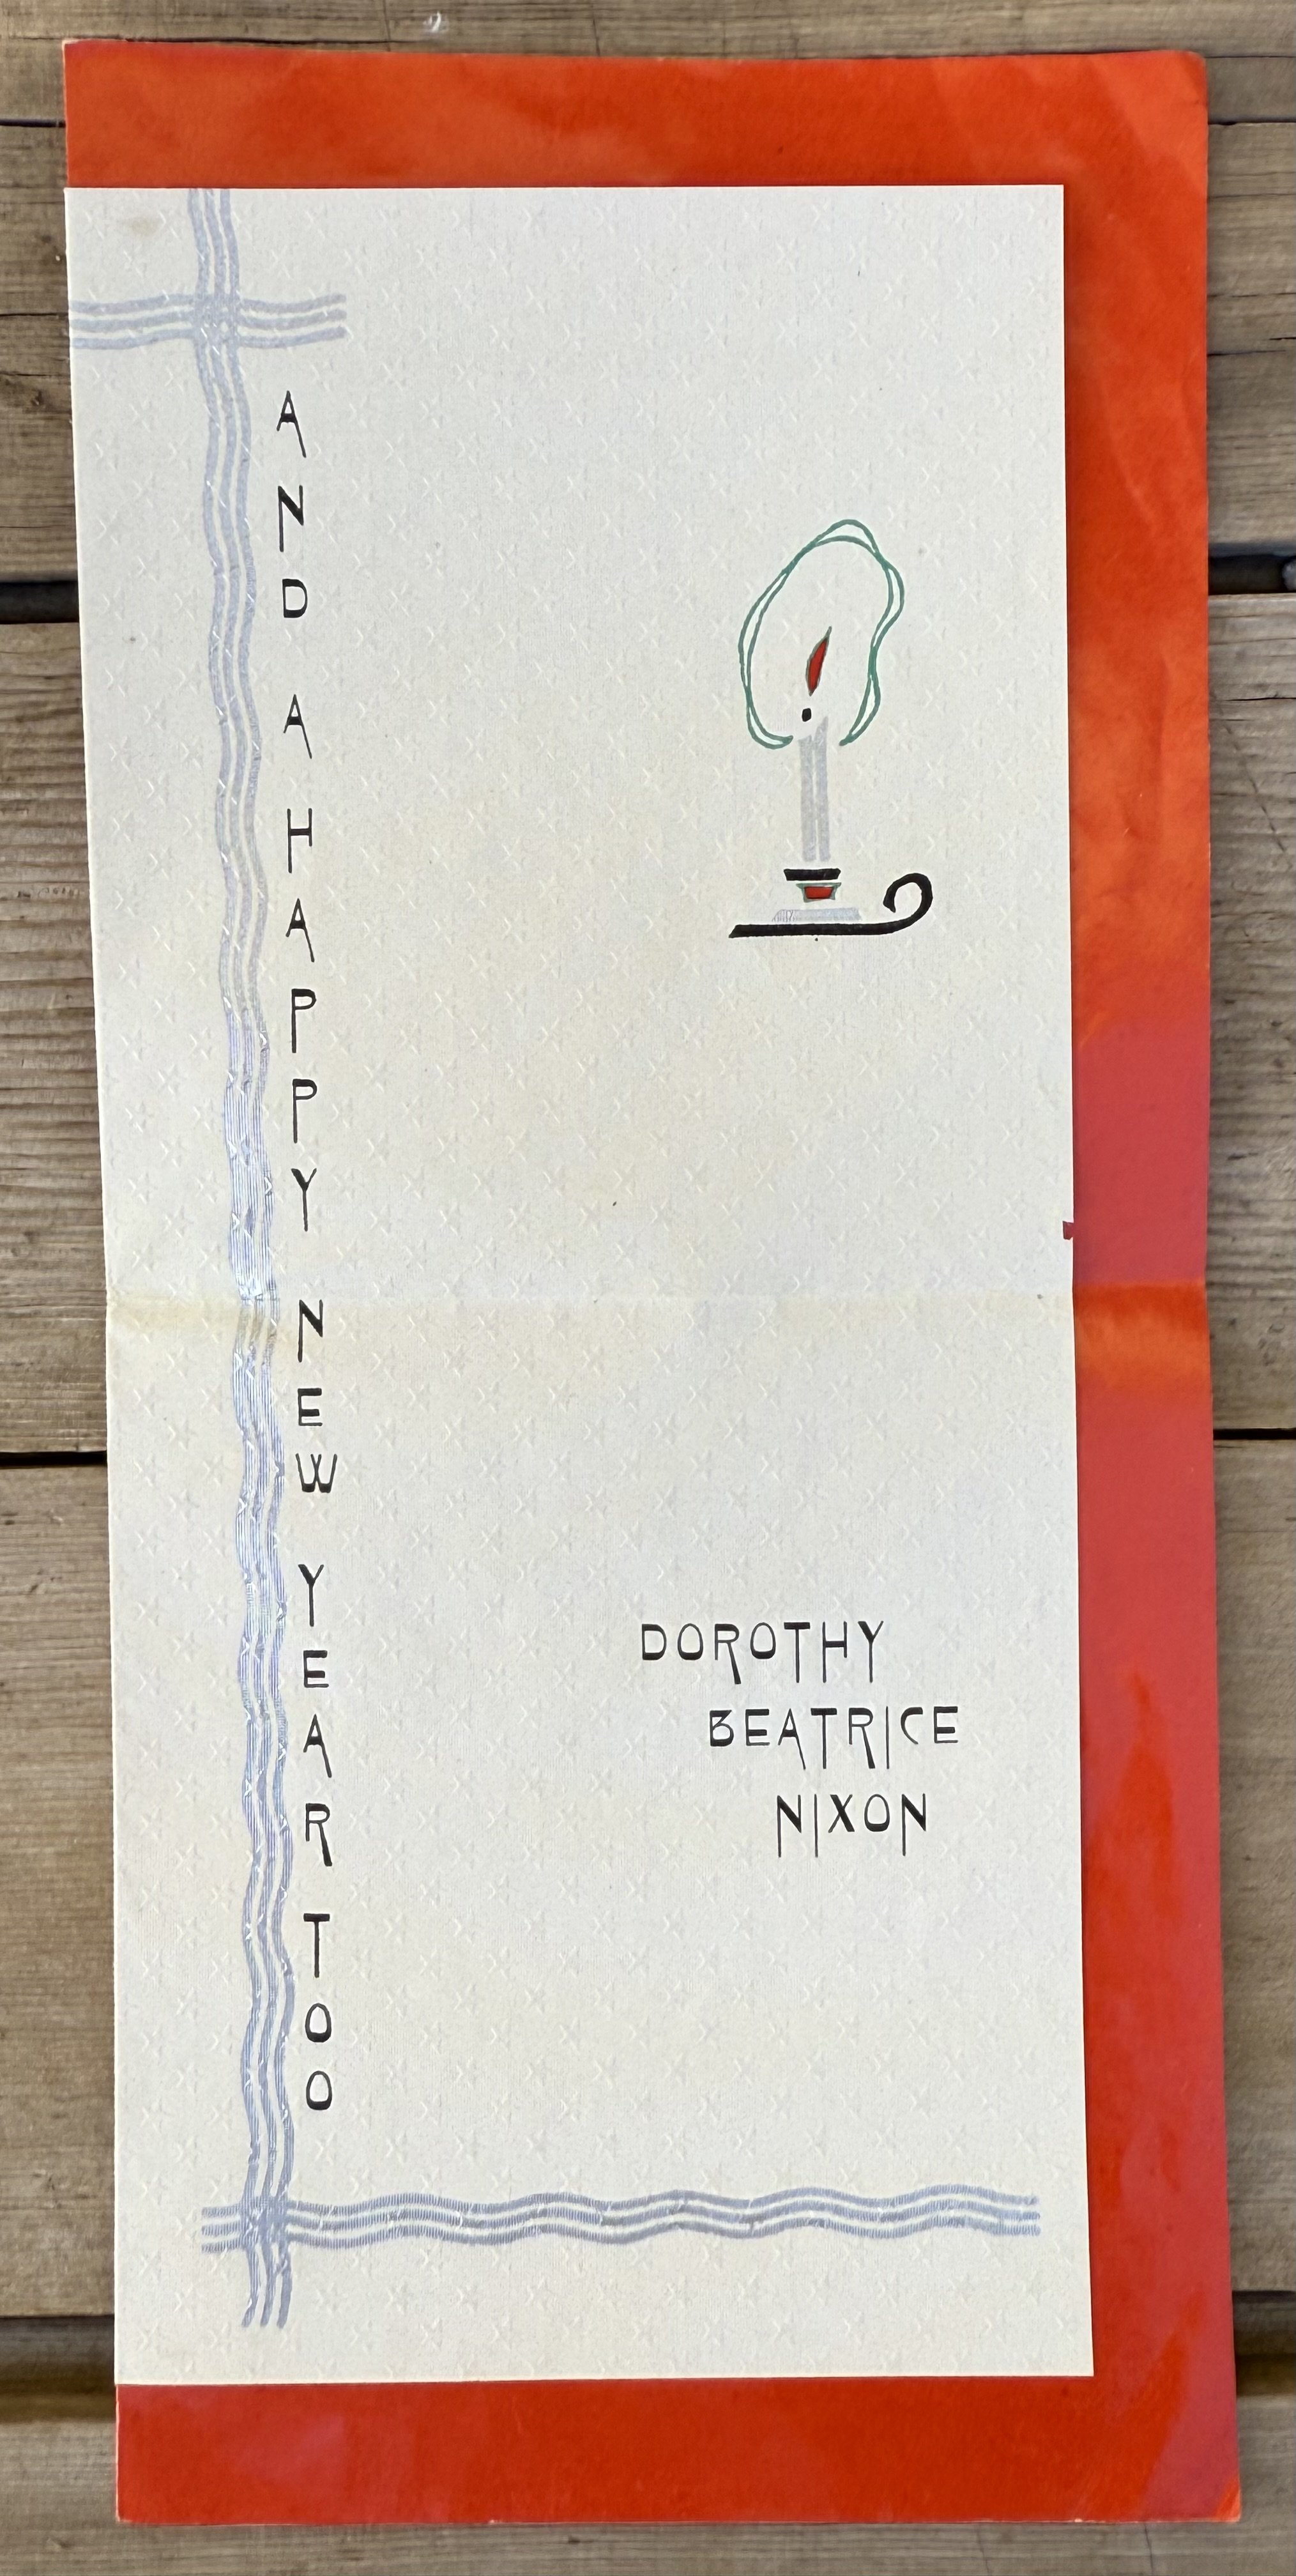 AND A HAPPY NEW YEAR TOO
DOROTHY
BEATRICE
NIXON